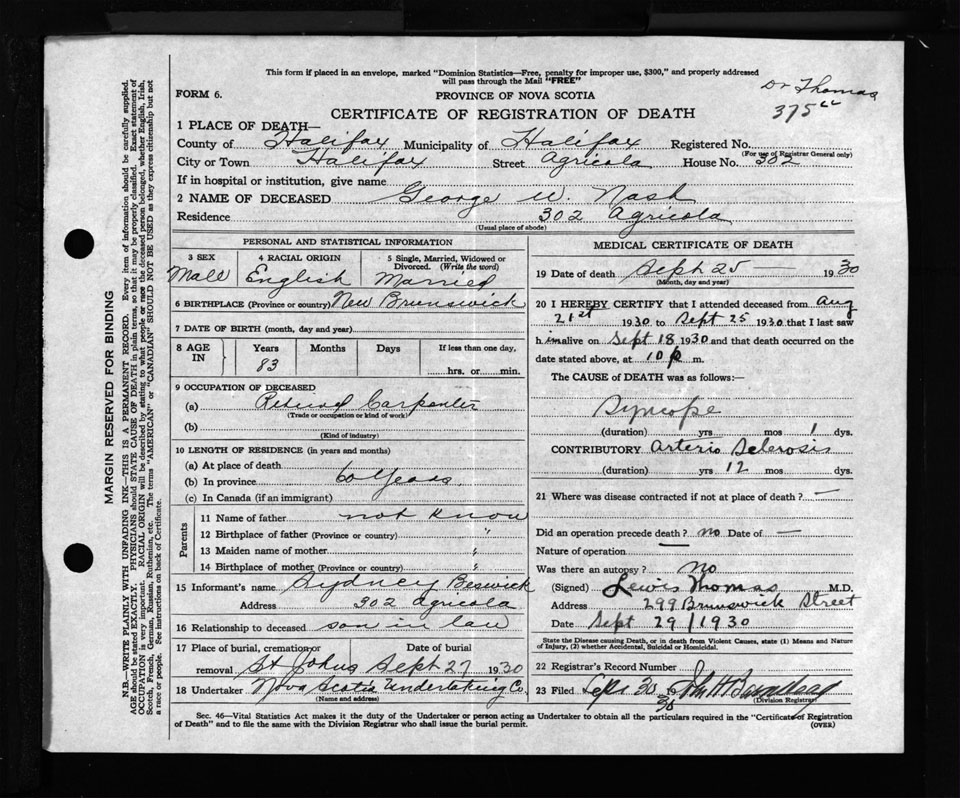 This form if placed in an envelope, marked "Dominion Statistics—Free, penalty for improper use, $300," and properly addressed
will pass through the Mail "FREE"
Dr Thomas
375
FORM 6.
PROVINCE OF NOVA SCOTIA
CERTIFICATE OF REGISTRATION OF DEATH
1 PLACE OF DEATH—
County of Halifax Municipality of Halifax Registered No.
(For use of Registrar General only)
City or Town Halifax Street Agricola House No. 302
If in hospital or institution, give name
2 NAME OF DECEASED George W. Nash
Residence 302 Agricola
(Usual place of abode)
PERSONAL AND STATISTICAL INFORMATION
3 SEX 4 RACIAL ORIGIN 5 Single, Married, Widowed or
Divorced. (Write the word)
Male English Married
6 BIRTHPLACE (Province or country) New Brunswick
7 DATE OF BIRTH (month, day and year)
8 AGE IN Years Months Days If less than one day,
83 hrs. or min.
9 OCCUPATION OF DECEASED
(a) Retired Carpenter
(Trade or occupation or kind of work)
(b)
(Kind of industry)
10 LENGTH OF RESIDENCE (in years and months)
(a) At place of death
(b) In province 60 Years
(c) In Canada (if an immigrant)
Parents
11 Name of father not know
12 Birthplace of father (Province or country) "
13 Maiden name of mother "
14 Birthplace of mother (Province or country) "
15 Informant's name Sydney Beswick
Address 302 Agricola
16 Relationship to deceased son in law
17 Place of burial, cremation or Date of burial
removal St Johns Sept 27 1930
18 Undertaker Nova Scotia Undertaking Co.
(Name and address)
MEDICAL CERTIFICATE OF DEATH
19 Date of death Sept 25 — 1930
(Month, day and year)
20 I HEREBY CERTIFY that I attended deceased from Aug
21st 1930 to Sept 25 1930 that I last saw
h im alive on Sept 18 1930 and that death occurred on the
date stated above, at 10 p m.
The CAUSE of DEATH was as follows:—
Syncope
(duration) yrs mos 1 dys.
CONTRIBUTORY Arterio Sclerosis
(duration) yrs 12 mos dys.
21 Where was disease contracted if not at place of death? —
Did an operation precede death? no Date of —
Nature of operation
Was there an autopsy? No
(Signed) Lewis Thomas M.D.
Address 299 Brunswick Street
Date Sept 29/1930
State the Disease causing Death, or in death from Violent Causes, state (1) Means and Nature
of Injury, (2) whether Accidental, Suicidal or Homicidal.
22 Registrar's Record Number
23 Filed Sept 30 19 30
(Division Registrar)
Sec. 46—Vital Statistics Act makes it the duty of the Undertaker or person acting as Undertaker to obtain all the particulars required in the "Certificate of Registration
of Death" and to file the same with the Division Registrar who shall issue the burial permit. (OVER)
MARGIN RESERVED FOR BINDING
N.B.—WRITE PLAINLY WITH UNFADING INK—THIS IS A PERMANENT RECORD. Every item of information should be carefully supplied.
AGE should be stated EXACTLY. PHYSICIANS should STATE CAUSE OF DEATH in plain terms, so that it may be properly classified. Exact statement of
OCCUPATION is very important. RACIAL ORIGIN will be described by stating to what people or race the deceased person belonged, whether English, Irish,
Scotch, French, German, Russian, Ruthenian, etc. The terms "AMERICAN" or "CANADIAN" SHOULD NOT BE USED as they express citizenship but not
a race or people. See instructions on back of Certificate.